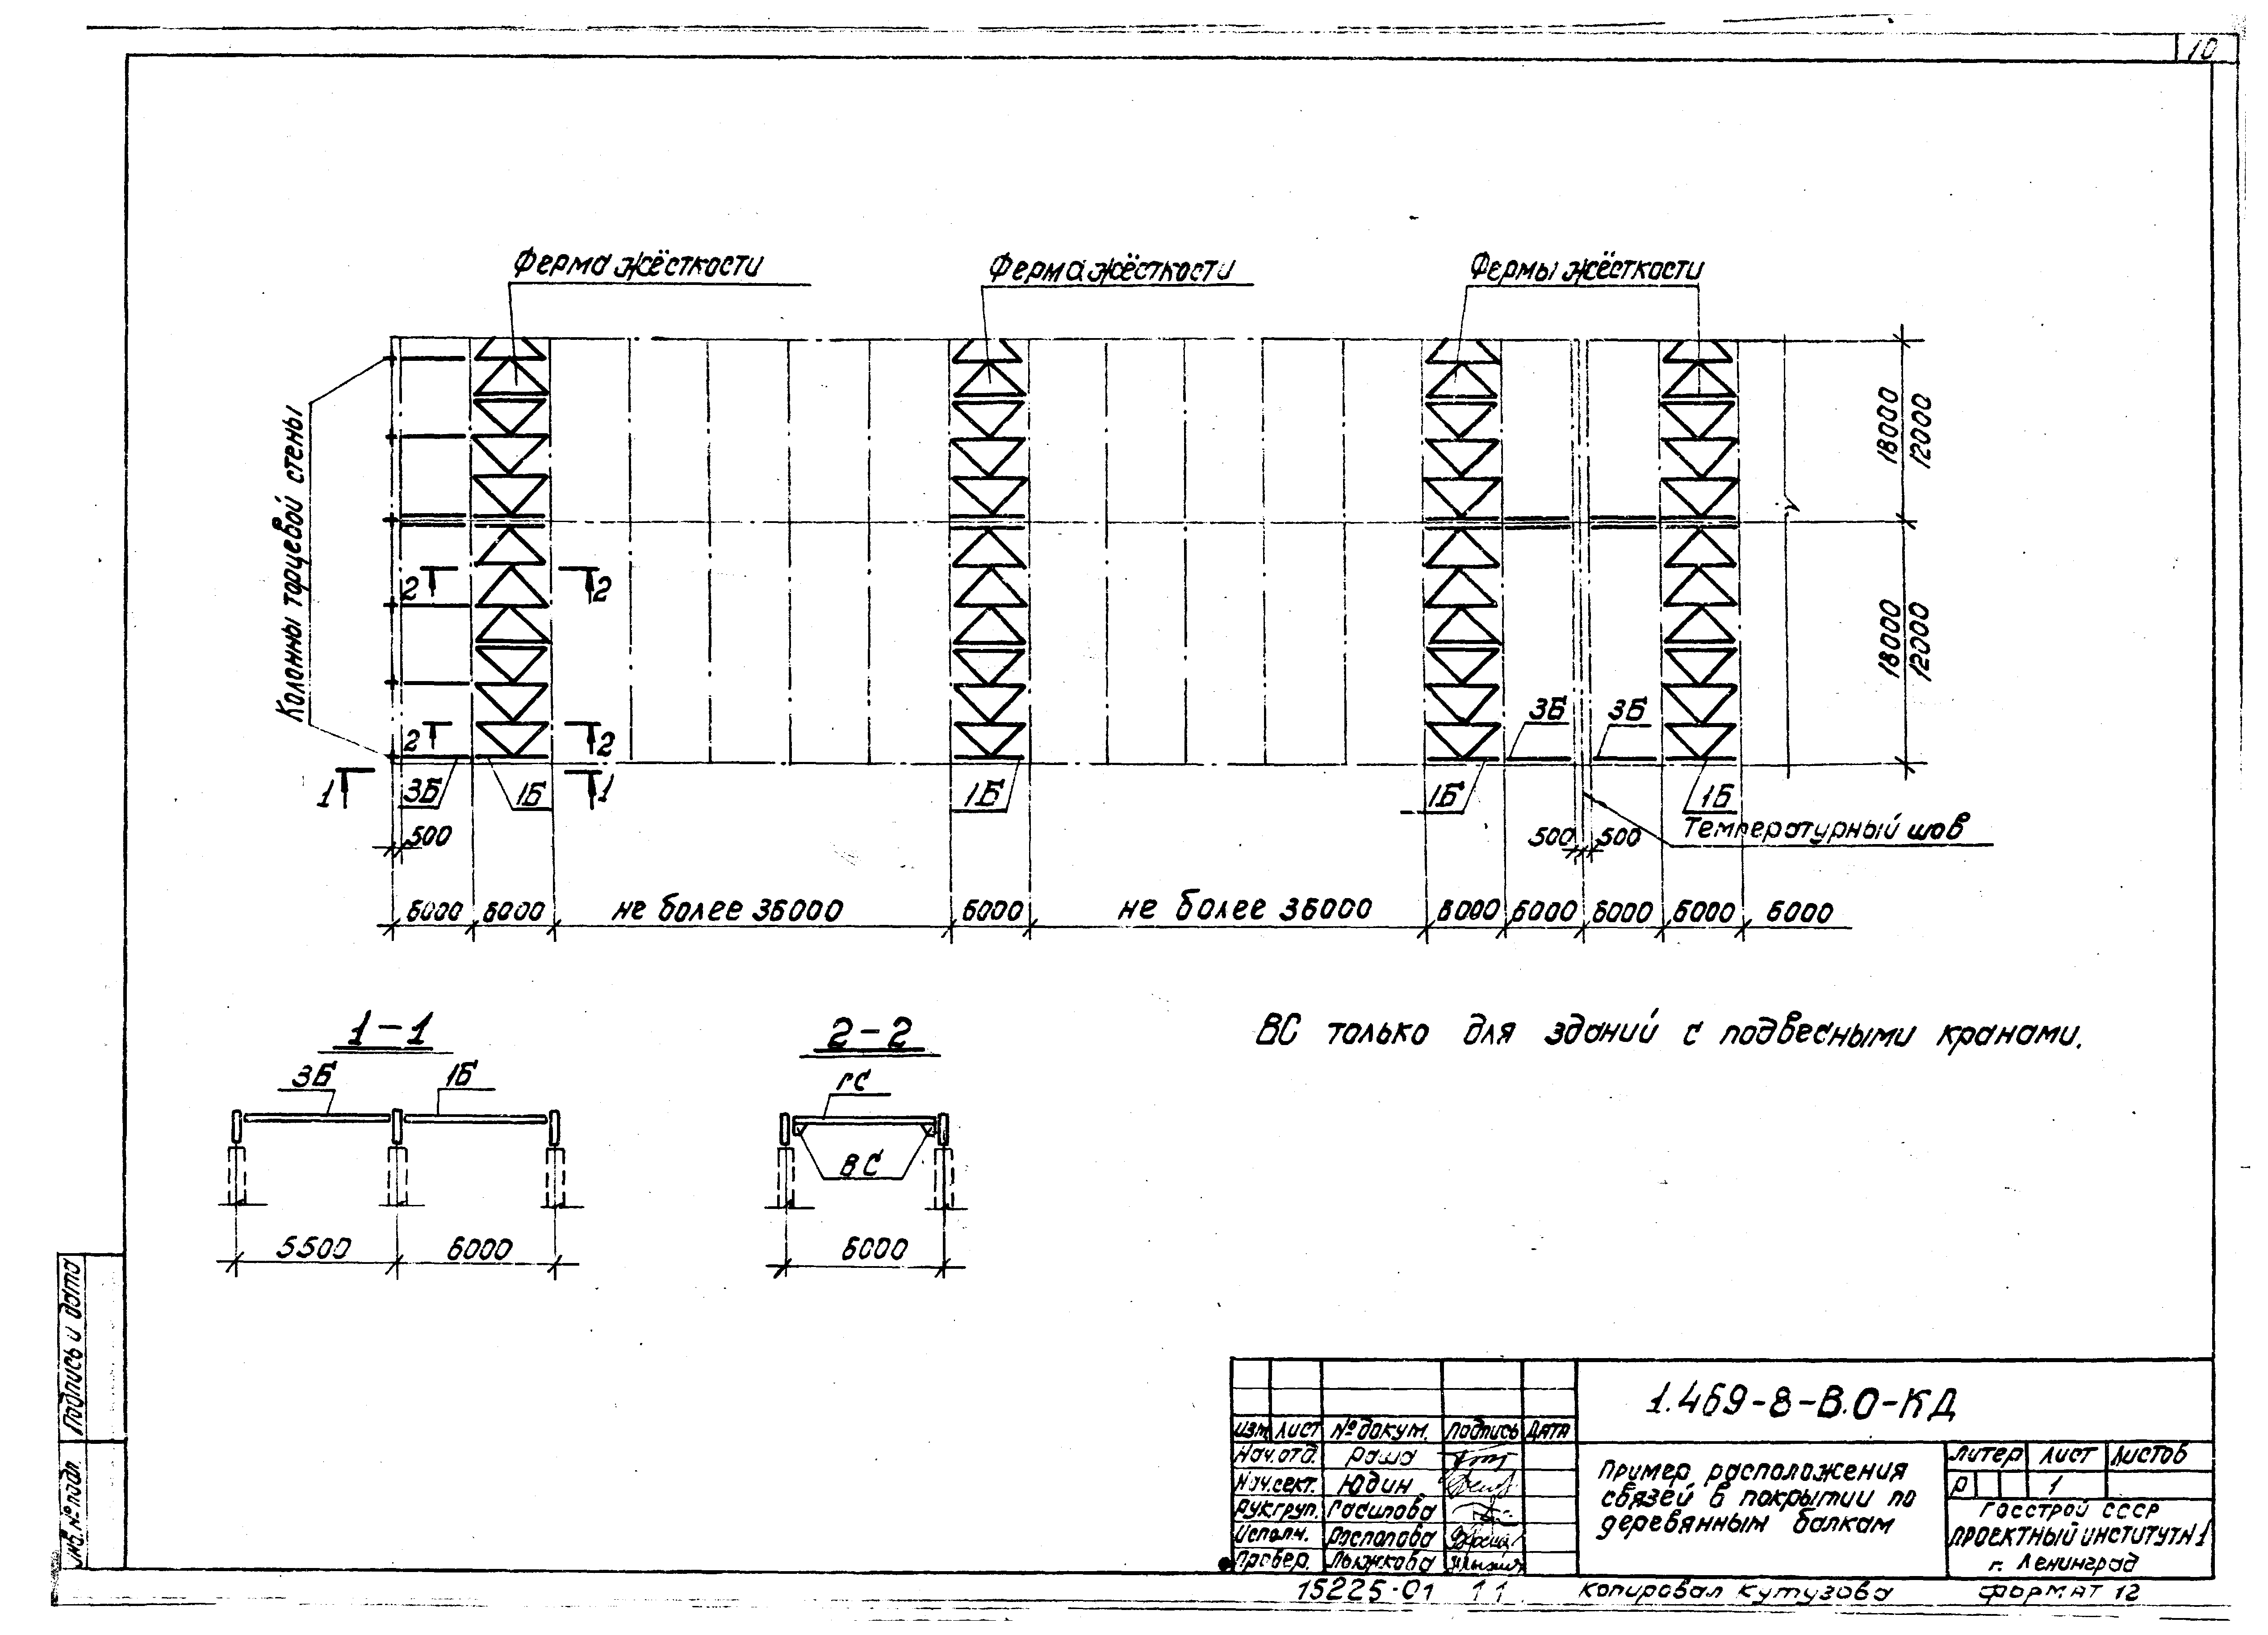 10
Ферма жёсткости
Ферма жёсткости
Фермы жёсткости
Колонны торцевой стены
18000
12000
18000
12000
2
2
2
2
1
1
3Б
1Б
1Б
3Б
3Б
1Б
1Б
500
500
500
Температурный шов
6000
6000
не более 36000
6000
не более 36000
6000
6000
6000
6000
6000
1-1
3Б
1Б
5500
6000
2-2
ГС
ВС
6000
ВС только для зданий с подвесными кранами.
Подпись и дата
Инв. № подл.
1.469-8-В.0-КД
Изм Лист № докум. Подпись Дата
Нач. отд.
Нач. сект. Юдин
Рук. груп. Гасилова
Исполн. Распопова
Провер. Лыжкова
Пример расположения
связей в покрытии по
деревянным балкам
Литер Лист Листов
Р 1
Госстрой СССР
Проектный институт №1
г. Ленинград
15225-01 11
Копировал Кутузова
Формат 12